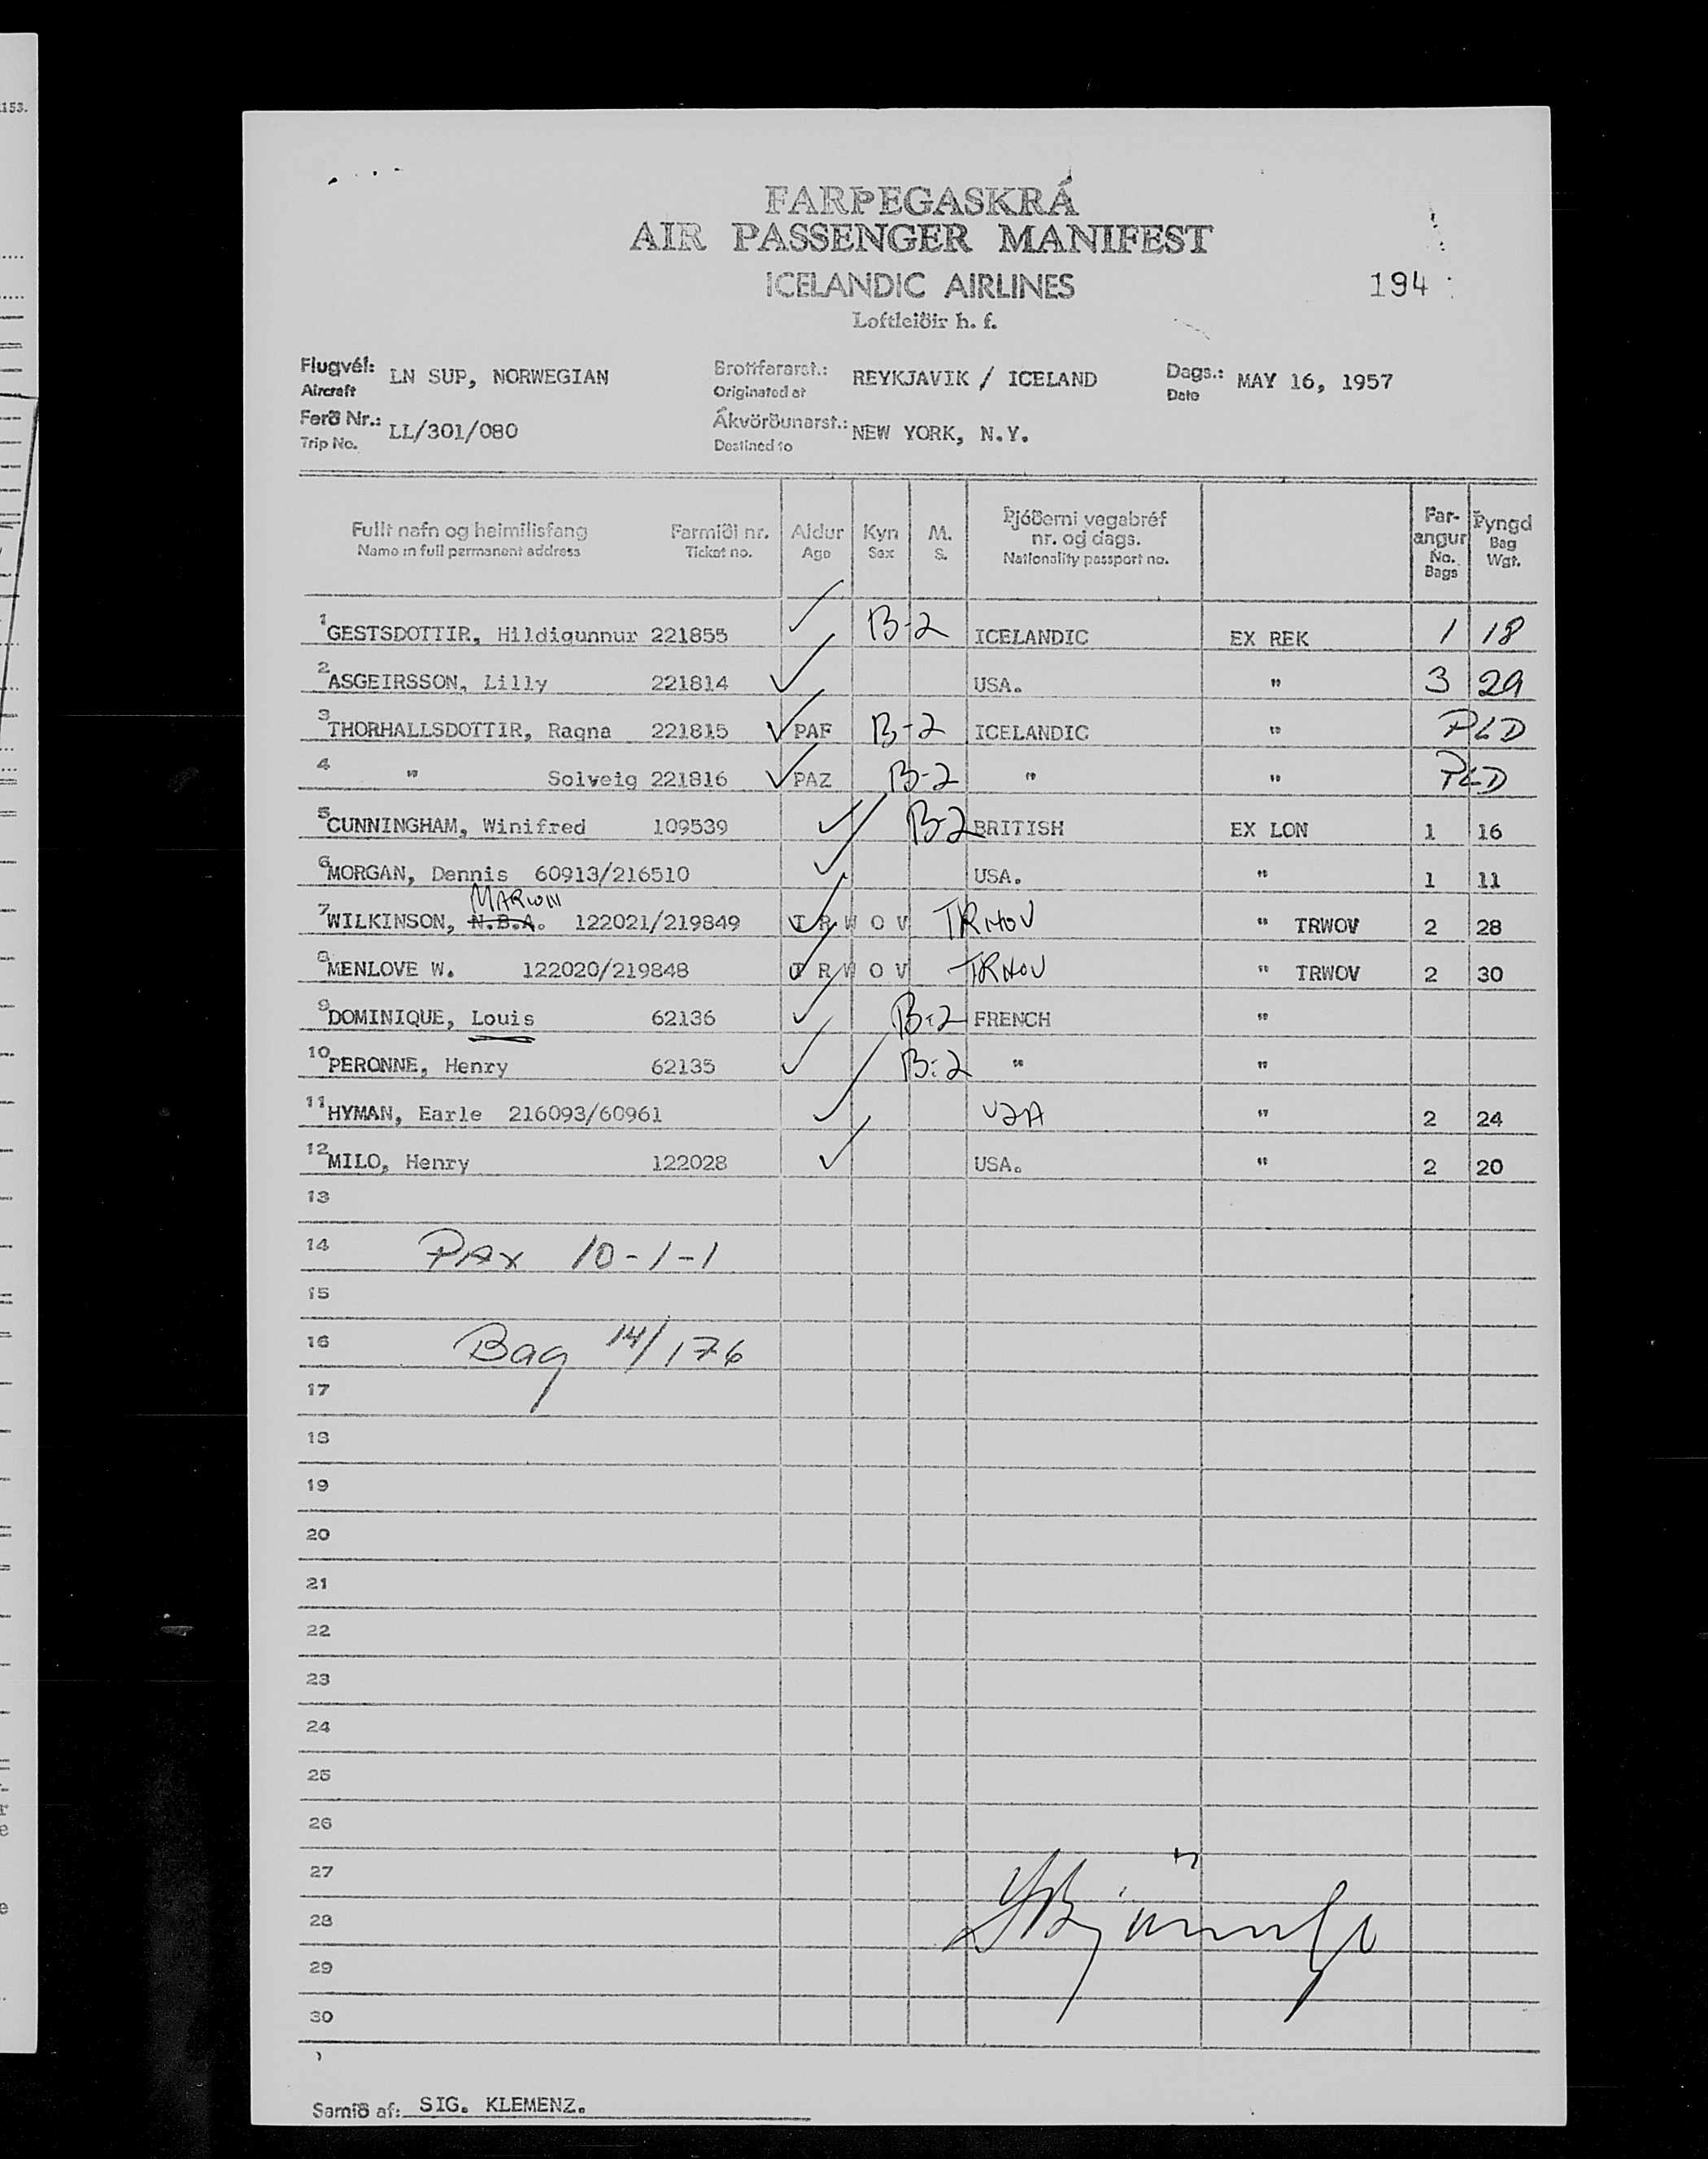 153.
FARÞEGASKRÁ
AIR PASSENGER MANIFEST
ICELANDIC AIRLINES
194
Loftleiðir h. f.
Flugvél: LN SUP, NORWEGIAN Brottfararst.: REYKJAVIK / ICELAND Dags.: MAY 16, 1957
Aircraft Originated at Date
Ferð Nr.: LL/301/080 Ákvörðunarst.: NEW YORK, N.Y.
Trip No. Destined to
Fullt nafn og heimilisfang Farmiði nr. Aldur Kyn M. Þjóðerni vegabréf nr. og dags. Far-angur Þyngd
Name in full permanent address Ticket no. Age Sex S. Nationality passport no. No. Bags Bag Wgt.
1 GESTSDOTTIR, Hildigunnur 221855 B-2 ICELANDIC EX REK 1 18
2 ASGEIRSSON, Lilly 221814 USA. " 3 29
3 THORHALLSDOTTIR, Ragna 221815 PAF B-2 ICELANDIC " PLD
4 " Solveig 221816 PAZ B-2 " " PLD
5 CUNNINGHAM, Winifred 109539 B-2 BRITISH EX LON 1 16
6 MORGAN, Dennis 60913/216510 USA. " 1 11
MARION
7 WILKINSON, N.B.A. 122021/219849 T R W O V TRWOV " TRWOV 2 28
8 MENLOVE W. 122020/219848 T R W O V TRWOV " TRWOV 2 30
9 DOMINIQUE, Louis 62136 B-2 FRENCH "
10 PERONNE, Henry 62135 B-2 " "
11 HYMAN, Earle 216093/60961 USA " 2 24
12 MILO, Henry 122028 USA. " 2 20
13
14 PAX 10-1-1
15
16 Bag 14/176
17
18
19
20
21
22
23
24
25
26
27
28
29
30
Samið af: SIG. KLEMENZ.